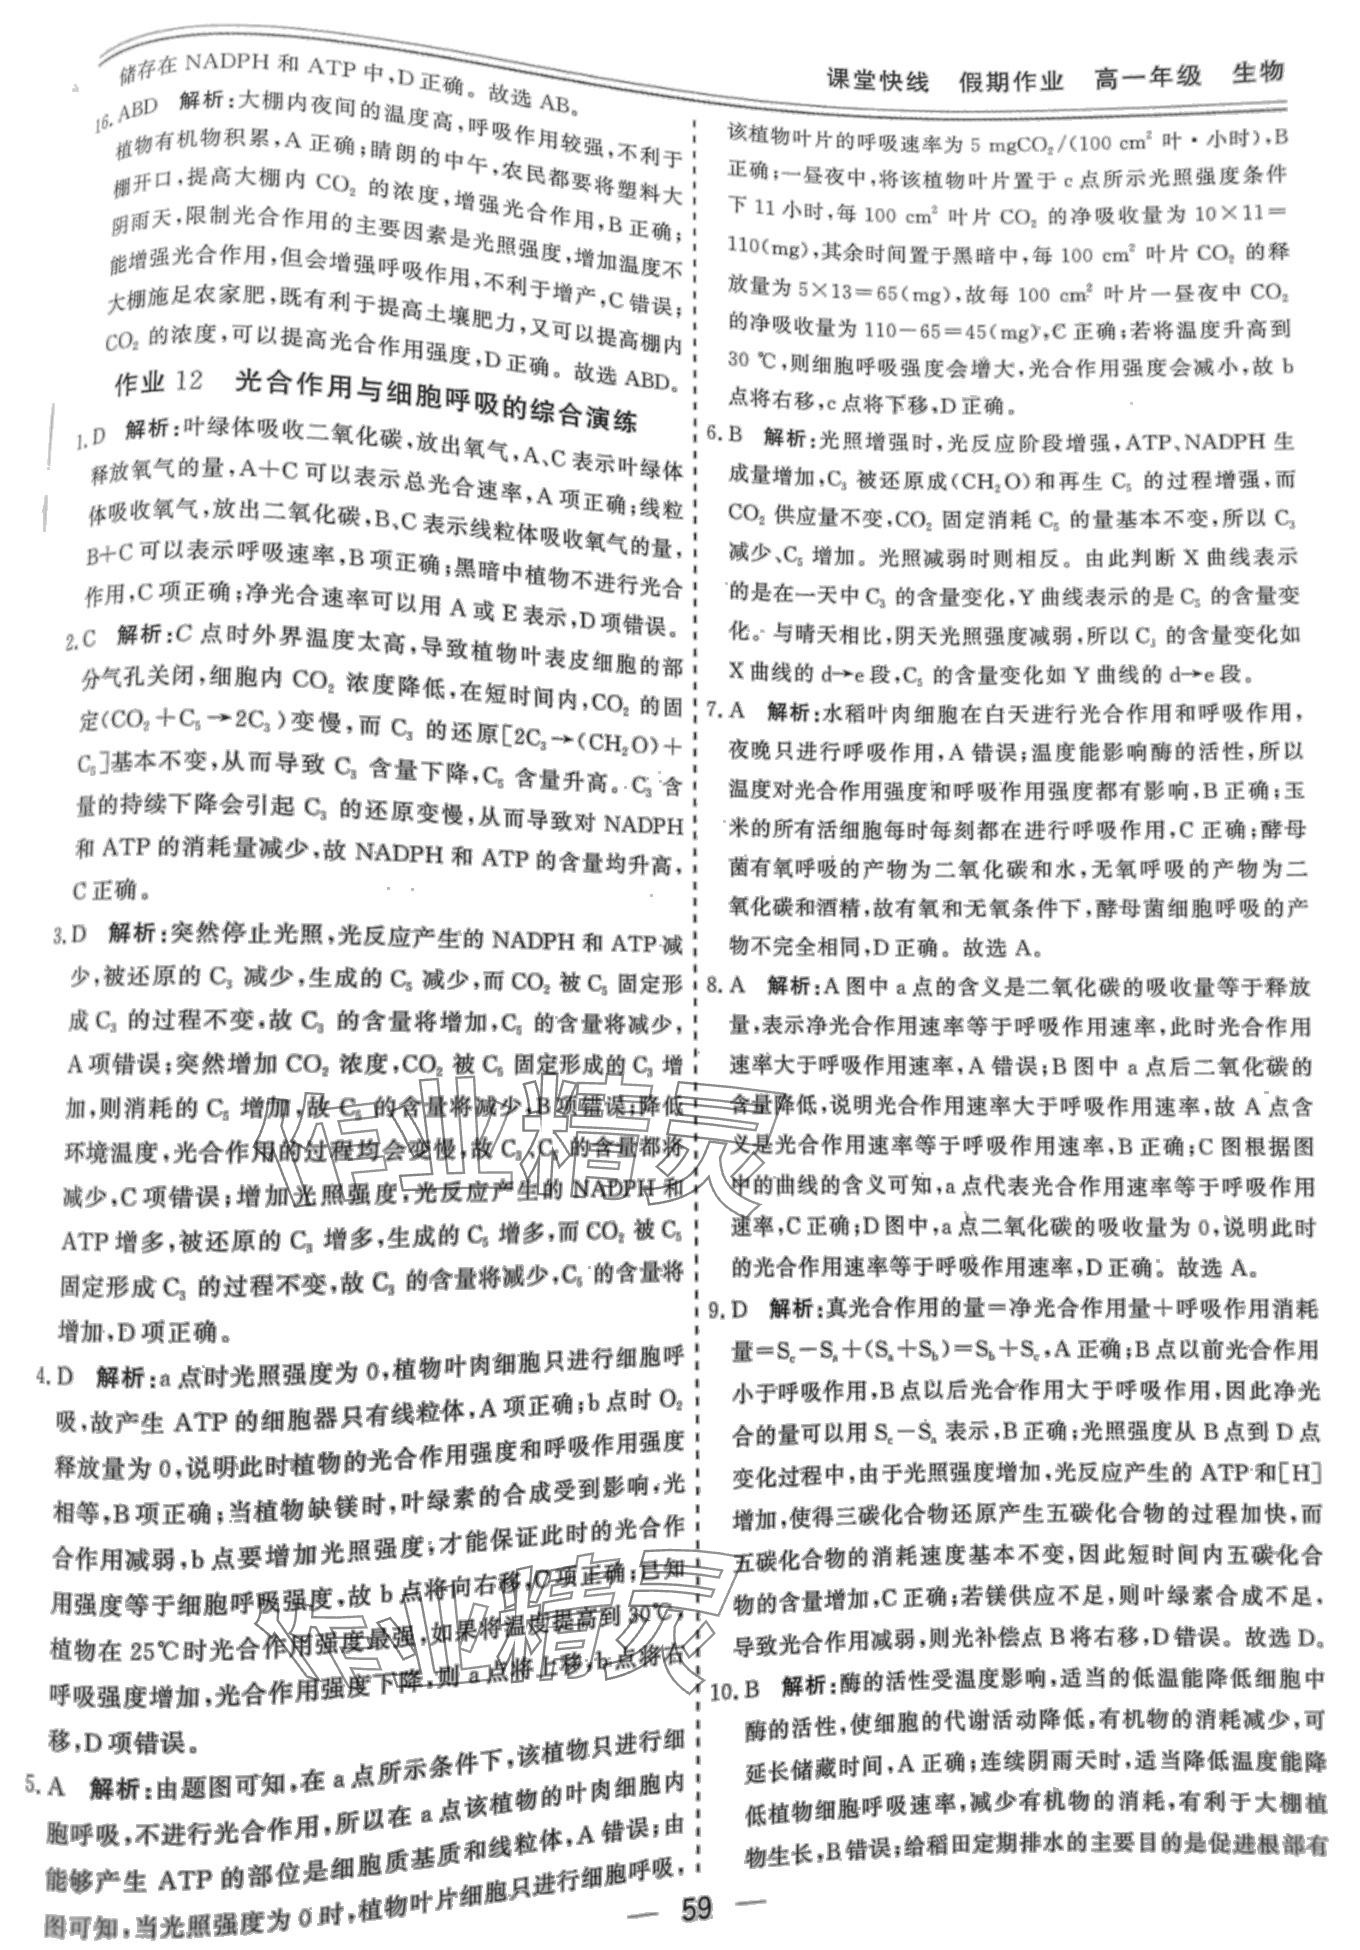 课堂快线 假期作业 高一年级 生物
储存在 NADPH 和 ATP 中,D 正确。故选 AB。
16. ABD 解析:大棚内夜间的温度高,呼吸作用较强,不利于
植物有机物积累,A 正确;晴朗的中午,农民都要将塑料大
棚开口,提高大棚内 CO₂ 的浓度,增强光合作用,B 正确;
阴雨天,限制光合作用的主要因素是光照强度,增加温度不
能增强光合作用,但会增强呼吸作用,不利于增产,C 错误;
大棚施足农家肥,既有利于提高土壤肥力,又可以提高棚内
CO₂ 的浓度,可以提高光合作用强度,D 正确。故选 ABD。
作业 12 光合作用与细胞呼吸的综合演练
1. D 解析:叶绿体吸收二氧化碳,放出氧气,A、C 表示叶绿体
释放氧气的量,A+C 可以表示总光合速率,A 项正确;线粒
体吸收氧气,放出二氧化碳,B、C 表示线粒体吸收氧气的量,
B+C 可以表示呼吸速率,B 项正确;黑暗中植物不进行光合
作用,C 项正确;净光合速率可以用 A 或 E 表示,D 项错误。
2. C 解析:C 点时外界温度太高,导致植物叶表皮细胞的部
分气孔关闭,细胞内 CO₂ 浓度降低,在短时间内,CO₂ 的固
定(CO₂+C₅→2C₃)变慢,而 C₃ 的还原[2C₃→(CH₂O)+
C₅]基本不变,从而导致 C₃ 含量下降,C₅ 含量升高。C₃ 含
量的持续下降会引起 C₃ 的还原变慢,从而导致对 NADPH
和 ATP 的消耗量减少,故 NADPH 和 ATP 的含量均升高,
C 正确。
3. D 解析:突然停止光照,光反应产生的 NADPH 和 ATP 减
少,被还原的 C₃ 减少,生成的 C₅ 减少,而 CO₂ 被 C₅ 固定形
成 C₃ 的过程不变,故 C₃ 的含量将增加,C₅ 的含量将减少,
A 项错误;突然增加 CO₂ 浓度,CO₂ 被 C₅ 固定形成的 C₃ 增
加,则消耗的 C₅ 增加,故 C₅ 的含量将减少,B 项错误;降低
环境温度,光合作用的过程均会变慢,故 C₃、C₅ 的含量都将
减少,C 项错误;增加光照强度,光反应产生的 NADPH 和
ATP 增多,被还原的 C₃ 增多,生成的 C₅ 增多,而 CO₂ 被 C₅
固定形成 C₃ 的过程不变,故 C₃ 的含量将减少,C₅ 的含量将
增加,D 项正确。
4. D 解析:a 点时光照强度为 0,植物叶肉细胞只进行细胞呼
吸,故产生 ATP 的细胞器只有线粒体,A 项正确;b 点时 O₂
释放量为 0,说明此时植物的光合作用强度和呼吸作用强度
相等,B 项正确;当植物缺镁时,叶绿素的合成受到影响,光
合作用减弱,b 点要增加光照强度,才能保证此时的光合作
用强度等于细胞呼吸强度,故 b 点将向右移,C 项正确;已知
植物在 25℃时光合作用强度最强,如果将温度提高到 30℃,
呼吸强度增加,光合作用强度下降,则 a 点将上移,b 点将右
移,D 项错误。
5. A 解析:由题图可知,在 a 点所示条件下,该植物只进行细
胞呼吸,不进行光合作用,所以在 a 点该植物的叶肉细胞内
能够产生 ATP 的部位是细胞质基质和线粒体,A 错误;由
图可知,当光照强度为 0 时,植物叶片细胞只进行细胞呼吸,
该植物叶片的呼吸速率为 5 mgCO₂/(100 cm² 叶·小时),B
正确;一昼夜中,将该植物叶片置于 c 点所示光照强度条件
下 11 小时,每 100 cm² 叶片 CO₂ 的净吸收量为 10×11=
110(mg),其余时间置于黑暗中,每 100 cm² 叶片 CO₂ 的释
放量为 5×13=65(mg),故每 100 cm² 叶片一昼夜中 CO₂
的净吸收量为 110-65=45(mg),C 正确;若将温度升高到
30 ℃,则细胞呼吸强度会增大,光合作用强度会减小,故 b
点将右移,c 点将下移,D 正确。
6. B 解析:光照增强时,光反应阶段增强,ATP、NADPH 生
成量增加,C₃ 被还原成(CH₂O)和再生 C₅ 的过程增强,而
CO₂ 供应量不变,CO₂ 固定消耗 C₅ 的量基本不变,所以 C₃
减少、C₅ 增加。光照减弱时则相反。由此判断 X 曲线表示
的是在一天中 C₃ 的含量变化,Y 曲线表示的是 C₅ 的含量变
化。与晴天相比,阴天光照强度减弱,所以 C₃ 的含量变化如
X 曲线的 d→e 段,C₅ 的含量变化如 Y 曲线的 d→e 段。
7. A 解析:水稻叶肉细胞在白天进行光合作用和呼吸作用,
夜晚只进行呼吸作用,A 错误;温度能影响酶的活性,所以
温度对光合作用强度和呼吸作用强度都有影响,B 正确;玉
米的所有活细胞每时每刻都在进行呼吸作用,C 正确;酵母
菌有氧呼吸的产物为二氧化碳和水,无氧呼吸的产物为二
氧化碳和酒精,故有氧和无氧条件下,酵母菌细胞呼吸的产
物不完全相同,D 正确。故选 A。
8. A 解析:A 图中 a 点的含义是二氧化碳的吸收量等于释放
量,表示净光合作用速率等于呼吸作用速率,此时光合作用
速率大于呼吸作用速率,A 错误;B 图中 a 点后二氧化碳的
含量降低,说明光合作用速率大于呼吸作用速率,故 A 点含
义是光合作用速率等于呼吸作用速率,B 正确;C 图根据图
中的曲线的含义可知,a 点代表光合作用速率等于呼吸作用
速率,C 正确;D 图中,a 点二氧化碳的吸收量为 0,说明此时
的光合作用速率等于呼吸作用速率,D 正确。故选 A。
9. D 解析:真光合作用的量=净光合作用量+呼吸作用消耗
量=Sc-Sa+(Sa+Sb)=Sb+Sc,A 正确;B 点以前光合作用
小于呼吸作用,B 点以后光合作用大于呼吸作用,因此净光
合的量可以用 Sc-Sa 表示,B 正确;光照强度从 B 点到 D 点
变化过程中,由于光照强度增加,光反应产生的 ATP 和[H]
增加,使得三碳化合物还原产生五碳化合物的过程加快,而
五碳化合物的消耗速度基本不变,因此短时间内五碳化合
物的含量增加,C 正确;若镁供应不足,则叶绿素合成不足,
导致光合作用减弱,则光补偿点 B 将右移,D 错误。故选 D。
10. B 解析:酶的活性受温度影响,适当的低温能降低细胞中
酶的活性,使细胞的代谢活动降低,有机物的消耗减少,可
延长储藏时间,A 正确;连续阴雨天时,适当降低温度能降
低植物细胞呼吸速率,减少有机物的消耗,有利于大棚植
物生长,B 错误;给稻田定期排水的主要目的是促进根部有
— 59 —
作业精灵
作业精灵